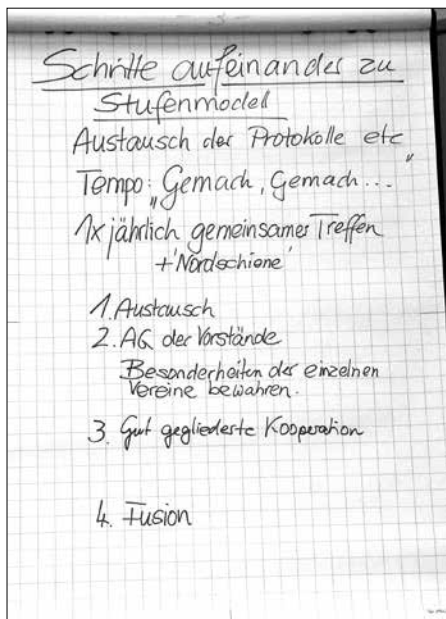 Schritte aufeinander zu
Stufenmodel
Austausch der Protokolle etc
Tempo: „Gemach, Gemach..."
1x jährlich gemeinsames Treffen
+ 'Nordschiene'
1. Austausch
2. AG der Vorstände
Besonderheiten der einzelnen
Vereine bewahren.
3. Gut gegliederte Kooperation
4. Fusion